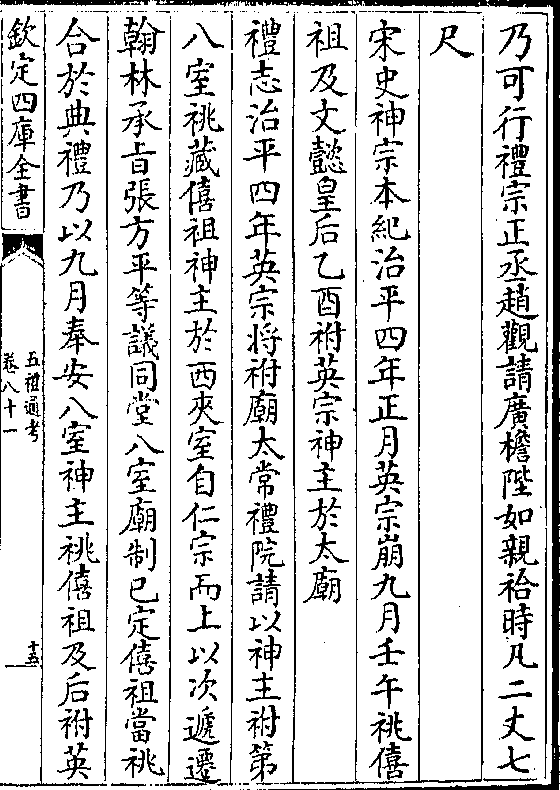 乃可行禮宗正丞趙觀請廣檐陛如親祫時凡二丈七
尺
宋史神宗本紀治平四年正月英宗崩九月壬午祧僖
祖及文懿皇后乙酉祔英宗神主於太廟
禮志治平四年英宗將祔廟太常禮院請以神主祔第
八室祧藏僖祖神主於西夾室自仁宗而上以次遞遷
翰林承旨張方平等議同堂八室廟制已定僖祖當祧
合於典禮乃以九月奉安八室神主祧僖祖及后祔英
欽定四庫全書
五禮通考
卷八十一
十五